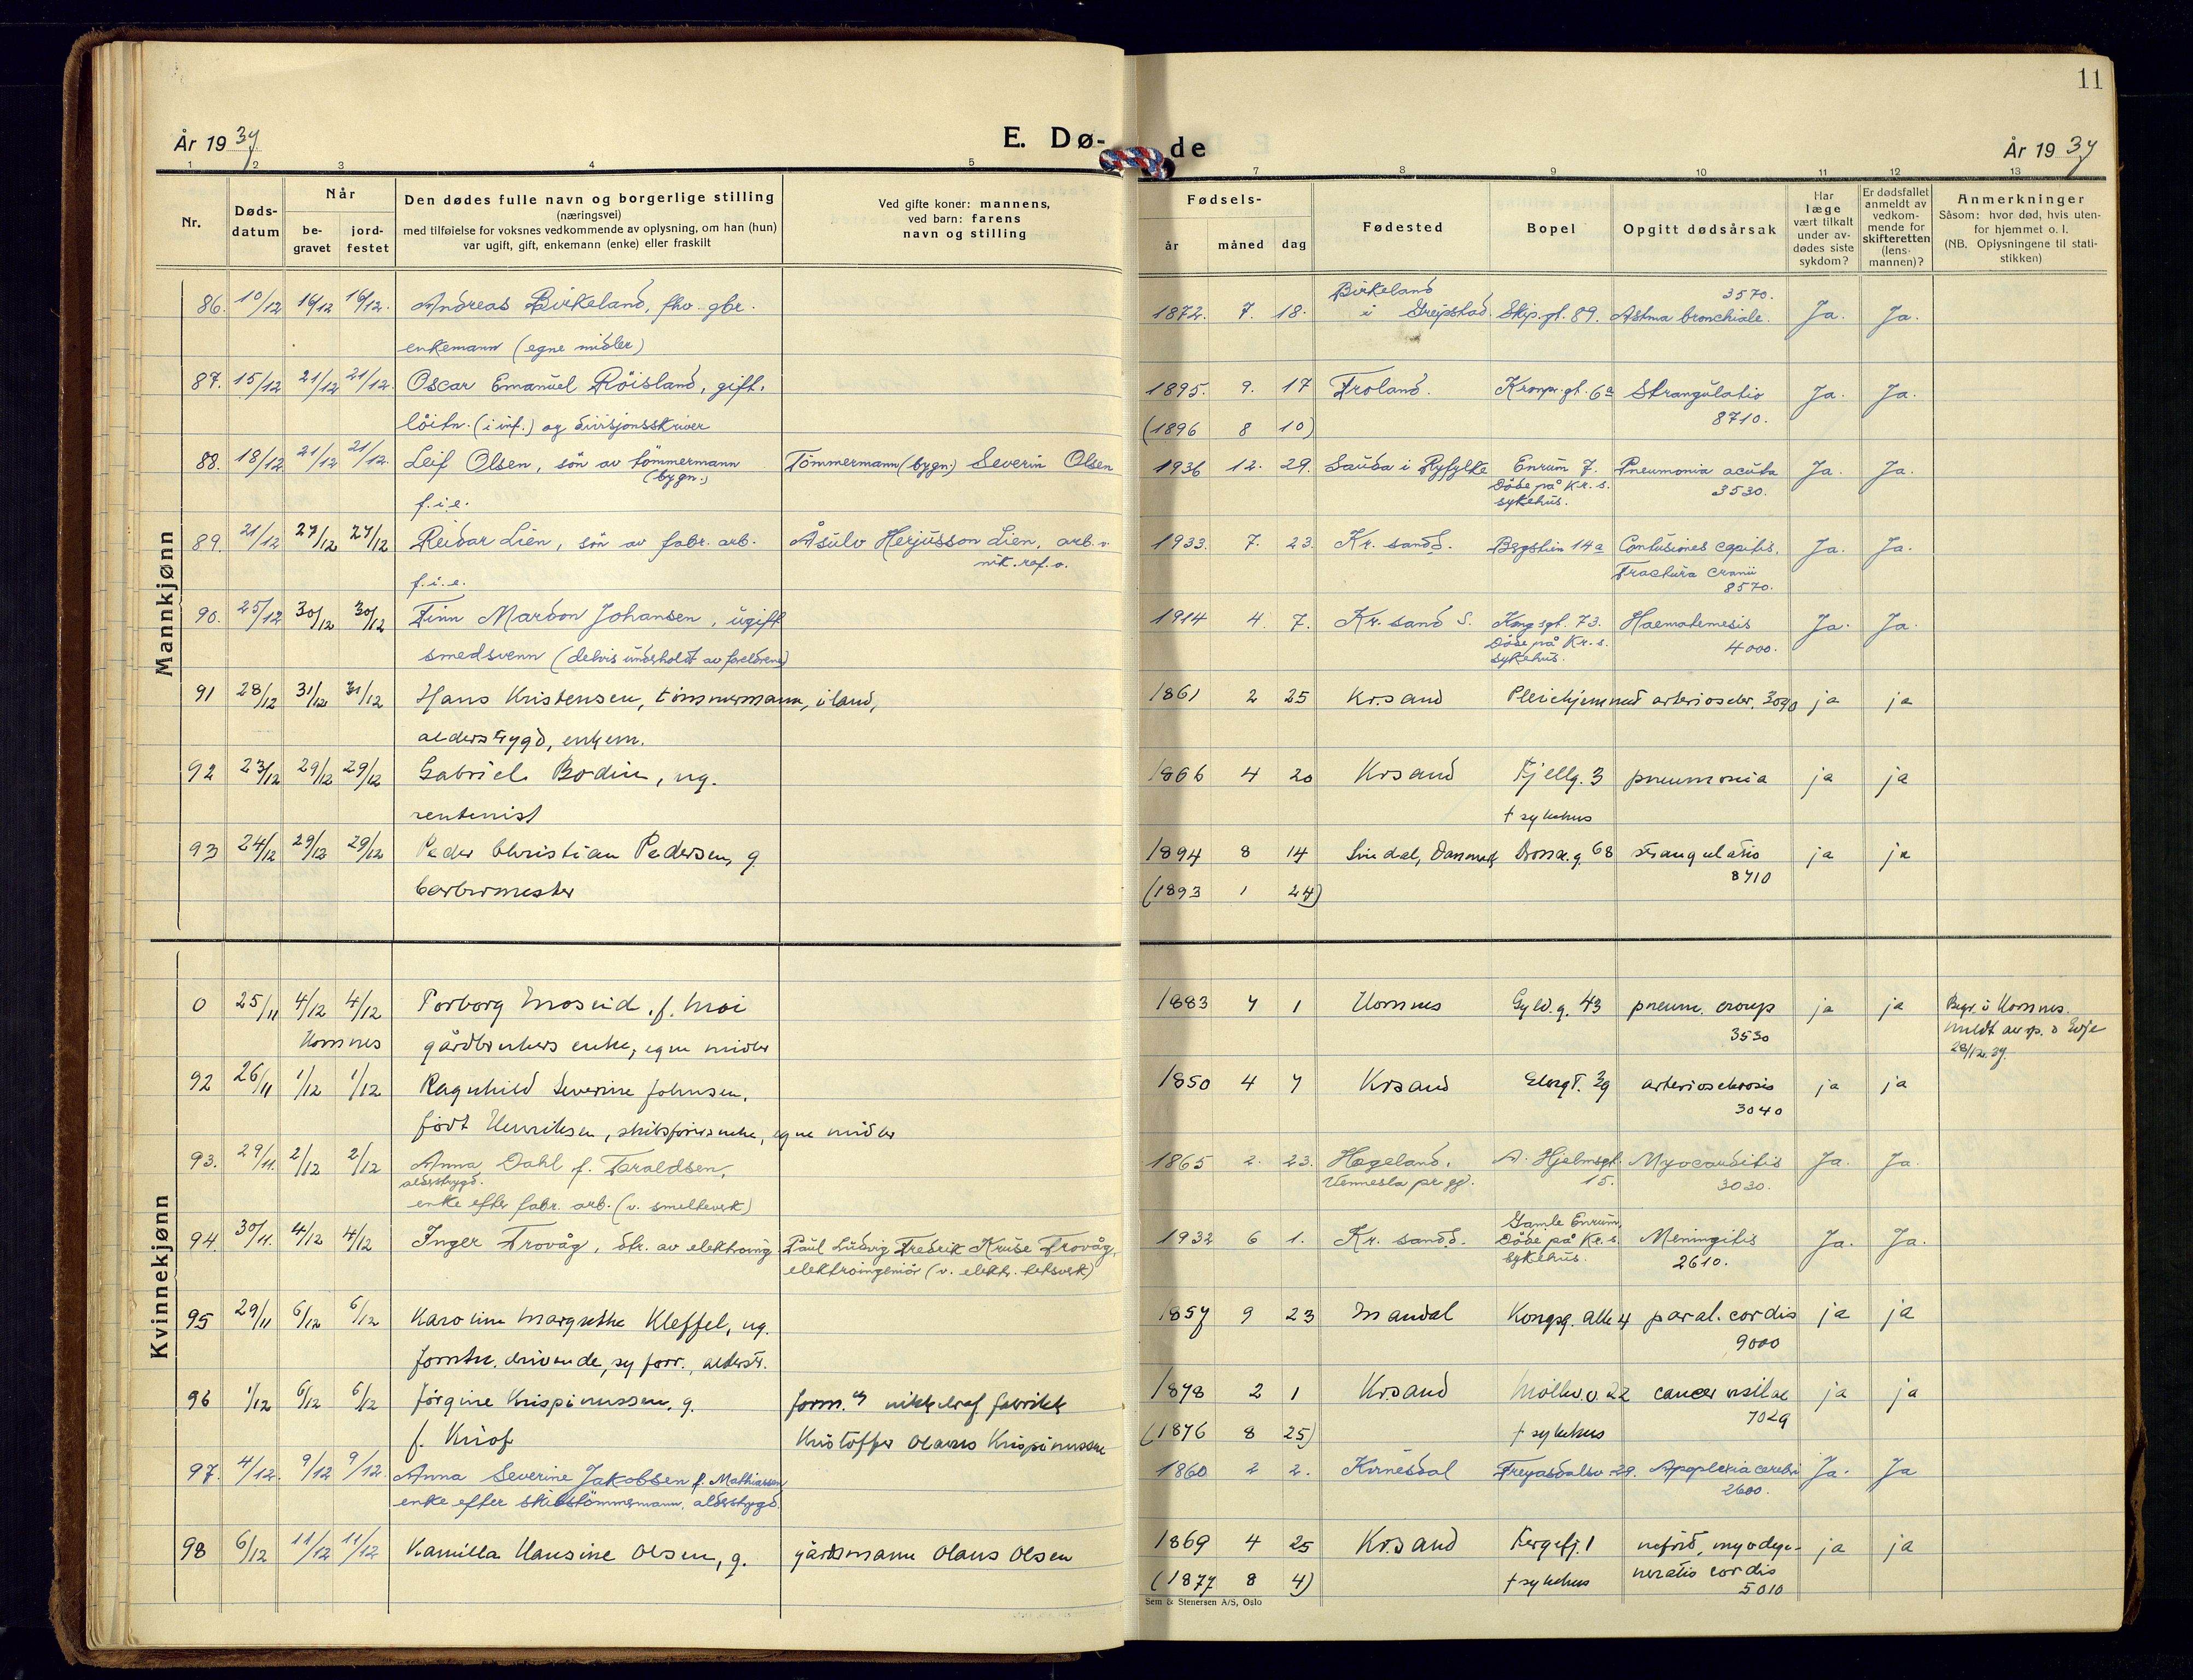 11
År 1937
E. Dø-
de
År 1937
1 2 3 4 5
7 8 9 10 11 12 13
Nr.
Døds-
datum
Når
be-
gravet
jord-
festet
Den dødes fulle navn og borgerlige stilling
(næringsvei)
med tilføielse for voksnes vedkommende av oplysning, om han (hun)
var ugift, gift, enkemann (enke) eller fraskilt
Ved gifte koner: mannens,
ved barn: farens
navn og stilling
Fødsels-
år måned dag
Fødested
Bopel
Opgitt dødsårsak
Har
læge
vært tilkalt
under av-
dødes siste
sykdom?
Er dødsfallet
anmeldt av
vedkom-
mende for
skifteretten
(lens-
mannen)?
Anmerkninger
Såsom: hvor død, hvis uten-
for hjemmet o. l.
(NB. Oplysningene til stati-
stikken)
Mannkjønn
86. 10/12 16/12 16/12. Andreas Birkeland, fhv. gbr. 1872. 7. 18. Birkeland i Greipstad. Skip.gt. 89. Astma bronchiale. 3570. Ja. Ja.
enkemann (egne midler)
87. 15/12 21/12 21/12. Oscar Emanuel Röisland, gift. 1895. 9. 17 Froland. Kronpr.gt. 6a Strangulatio Ja. Ja.
löitn. (i inf.) og divisjonsskriver (1896 8 10) 8710.
88. 18/12 21/12 21/12. Leif Olsen, sön av tömmermann Tömmermann (bygn.) Severin Olsen 1936 12. 29. Sauda i Ryfylke Enrum 7. Pneumonia acuta Ja. Ja.
(bygn.) Döde på Kr.s. sykehus. 3530.
f.i.e.
89. 21/12 27/12 27/12 Reidar Lien, sön av fabr. arb. Åsulv Herjusson Lien, arb. v. 1933. 7. 23. Kr.sand S. Bergstien 14a Contusiones capitis. Ja. Ja.
nik.raf.v. Fractura cranii
f.i.e. 8570.
90. 25/12 30/12 30/12 Finn Mardon Johansen, ugift 1914 4. 7. Kr.sand S. Kongsgt. 73. Haematemesis Ja. Ja.
smedsvenn (delvis underholdt av foreldrene) Döde på Kr.s. sykehus. 4000.
91 28/12 31/12 31/12 Hans Kristensen, tömmermann, iland, 1861 2 25 Kr.sand Pleiehjemmet arterioscler. 3090 ja ja
alderstrygd, enkem.
92 23/12 29/12 29/12 Gabriel Bodin, ug. 1866 4 20 Krsand Fjellg. 3 pneumonia ja ja
rentenist † sykehus
93 24/12 29/12 29/12 Peder Christian Pedersen, g 1894 8 14 Lindal, Danmark 68 strangulatio ja ja
barbermester (1893 1 24) 8710
Kvinnekjønn
0 25/11 4/12 4/12 Torborg Moseid, f. Moi 1883 7 1 Hornnes Gyld.g. 43 pneum. croup ja ja Begr. i Hornnes.
Hornnes gårdbrukers enke, egne midler 3530 meldt Evje
28/12.37.
92 26/11 1/12 1/12 Ragnhild Severine Johnsen, 1850 4 7 Krsand Elvegt. 39 arteriosclerosis ja ja
födt Henriksen, skibsförers enke, egne midler 3040
93. 29/11. 2/12 2/12 Anna Dahl f. Taraldsen, 1865 2. 23. Hægeland. A. Hjelmsgt. 15. Myocarditis Ja. Ja.
alderstrygd. Vennesla pr.gj. 3030.
enke efter fabr. arb. (v. smelteverk)
94. 30/11. 4/12 4/12 Inger Trovåg, dtr. av elektroing. Paul Ludvig Fredrik Kruse Trovåg, 1932 6 1. Kr.sand S. Gamle Enrum, Meningitis Ja. Ja.
elektroingeniör (v. elektr.) Döde på Kr.s. sykehus. 2610.
95 29/11 6/12 6/12 Karoline Margrethe Kleffel, ug. 1857 9 23 Mandal Kongsg. alle 4 paral. cordis ja ja
drivende, sy forr., alderstr. 9000
96 1/12 6/12 6/12 Jörgine Krispinussen, g. form. nikkelraf fabrikk 1878 2 1 Krsand 22 cancer ja ja
f. Kristoffer Olavus Krispinussen (1876 8 25) † sykehus 7029
97. 4/12. 9/12 9/12. Anna Severine Jakobsen f. Mathiassen 1860 2 2. Kvinesdal Freyasdalsv. 29. Apoplexia cerebri Ja. Ja
enke efter skibstömmermann, alderstrygd. 2600.
98 6/12 11/12 11/12 Kamilla Hansine Olsen, g. gårdsmann Olaus Olsen 1869 4 25 Krsand 1 nefrit, myodege- ja ja
(1877 8 4) † sykehus neratio cordis
5010
Sem & Stenersen A/S, Oslo